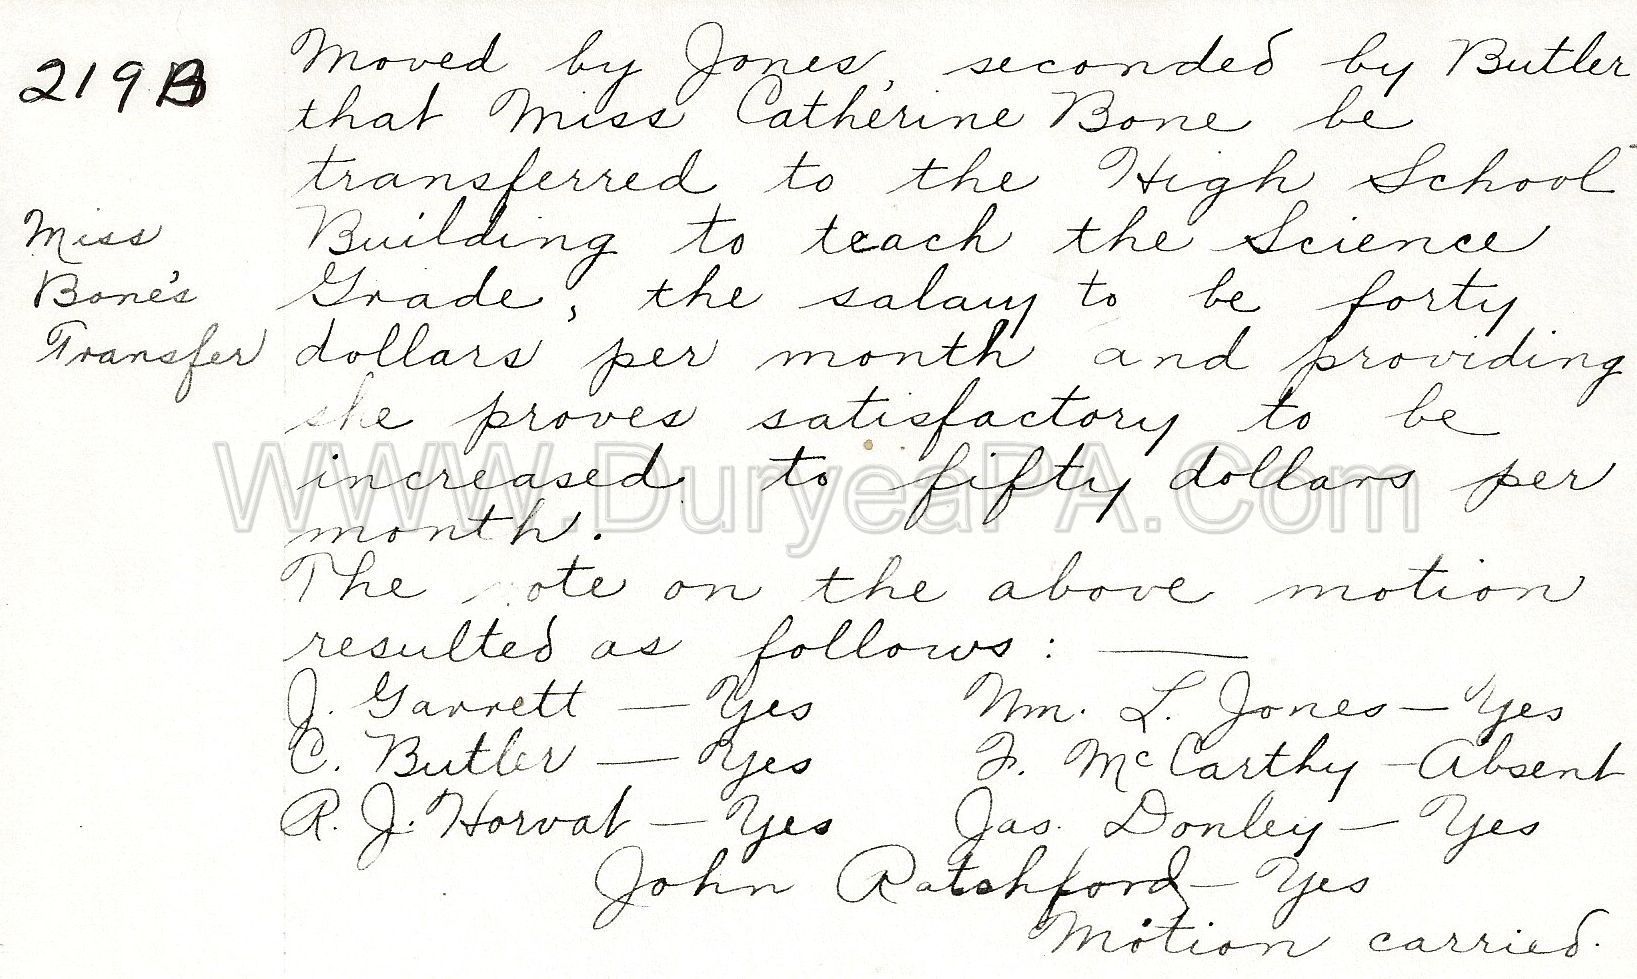 219B
Moved by Jones, seconded by Butler
that Miss Catherine Bone be
transferred to the High School
Miss
Building to teach the Science
Bone's
Grade, the salary to be forty
Transfer
dollars per month and providing
she proves satisfactory to be
WWW.DuryeaPA.Com
increased to fifty dollars per
month.
The vote on the above motion
resulted as follows: —
J. Garrett — Yes Wm. L. Jones — Yes
C. Butler — Yes F. McCarthy - Absent
R. J. Horvat — Yes Jas. Donley — Yes
John Ratchford — Yes
Motion carried.